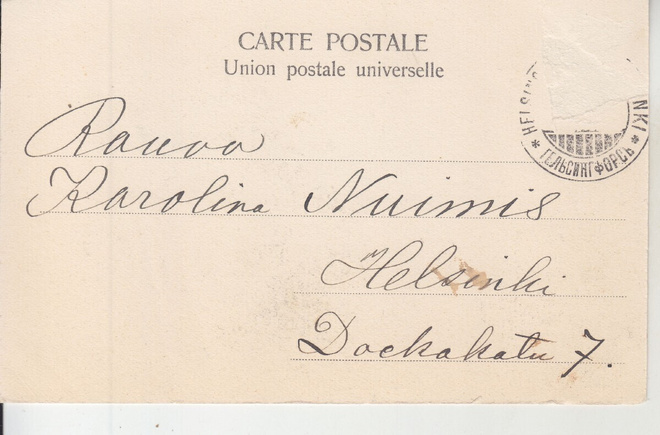 CARTE POSTALE
Union postale universelle
HELSIN NKI
ГЕЛЬСИНГФОРСЪ
Rouva
Karolina Nuimis
Helsinki
Dockakatu 7.